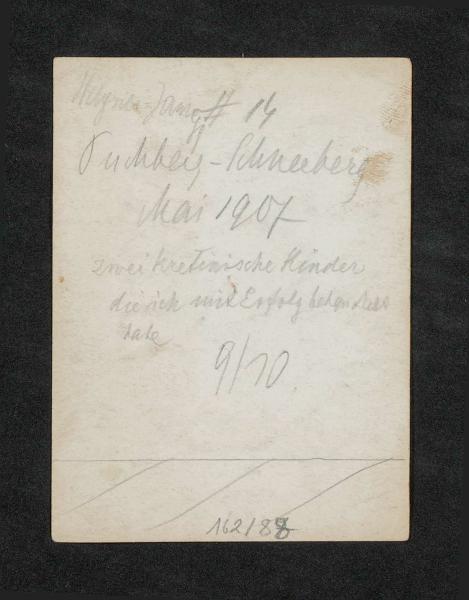 # 14
Puchberg-Schneeberg
Mai 1907
zwei kretinische Kinder
die ich mit Erfolg behandelt
habe
9/10
162/88